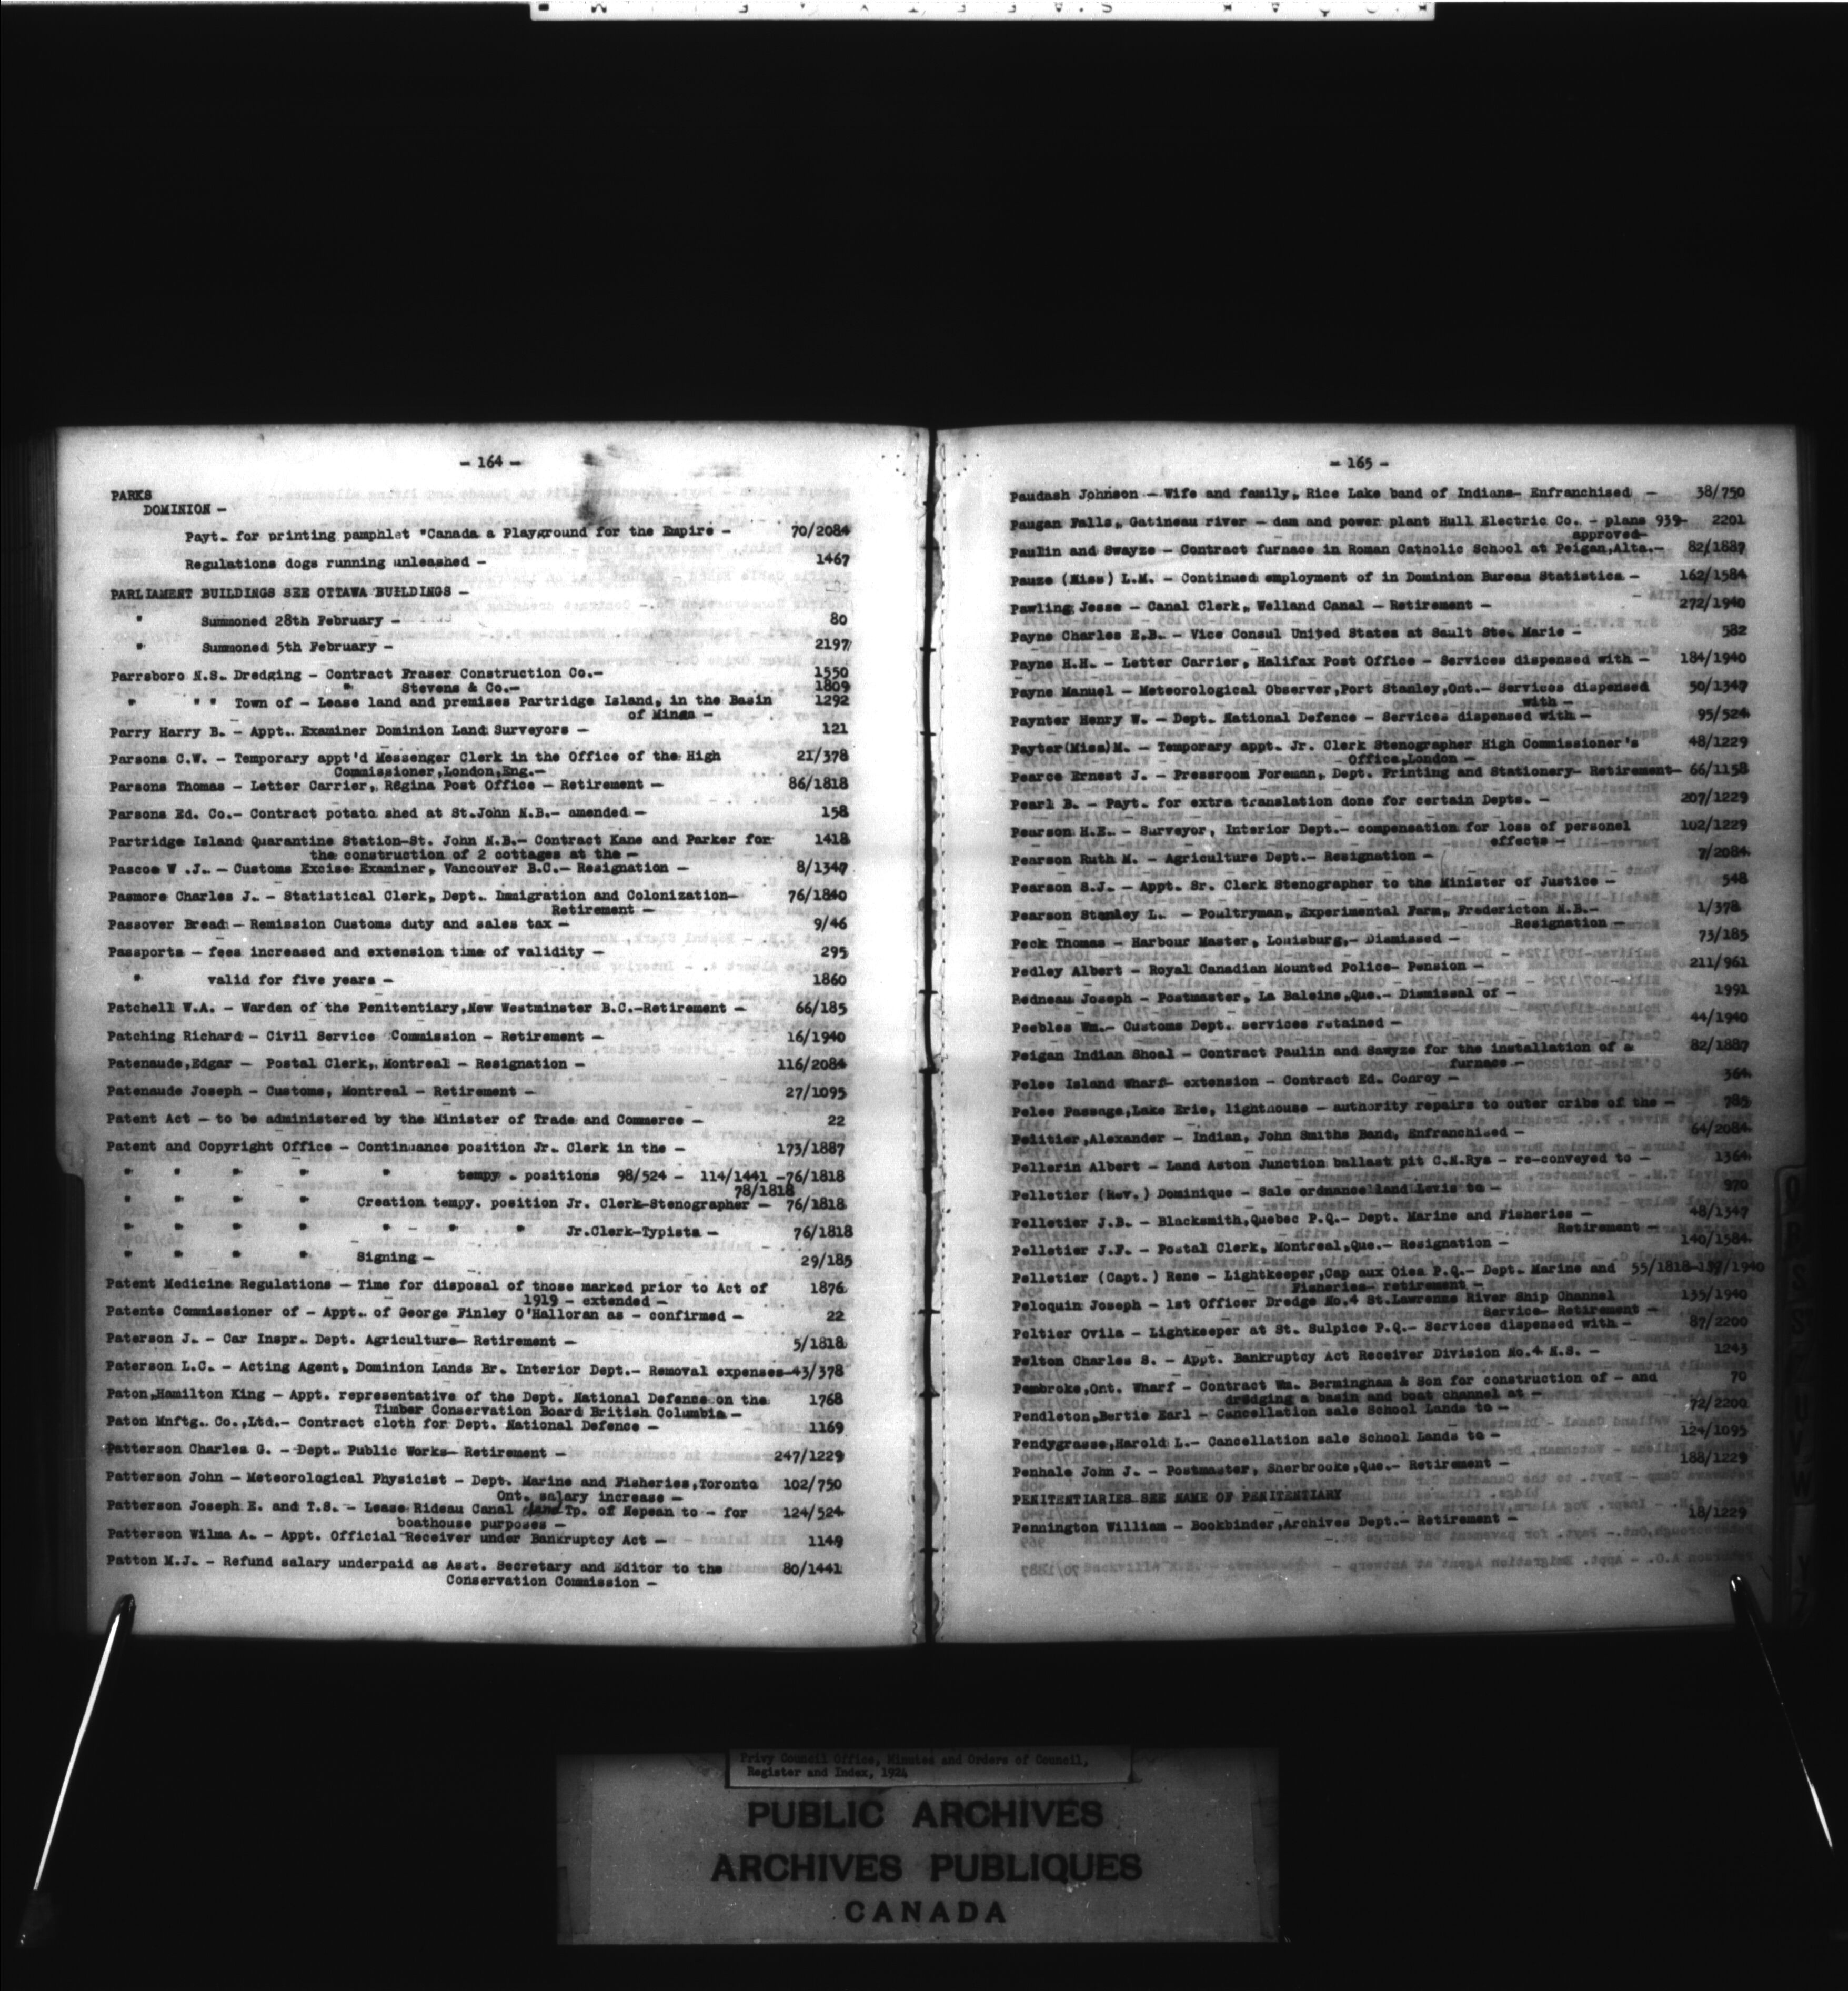 - 164 -
PARKS
DOMINION -
Payt. for printing pamphlet "Canada a Playground for the Empire - 70/2084
Regulations dogs running unleashed - 1467
PARLIAMENT BUILDINGS SEE OTTAWA BUILDINGS -
" Summoned 28th February - 80
" Summoned 5th February - 2197
Parrsboro N.S. Dredging - Contract Fraser Construction Co.- 1550
" Stevens & Co.- 1809
" " " Town of - Lease land and premises Partridge Island, in the Basin 1292
of Minga -
Parry Harry B. - Appt. Examiner Dominion Land Surveyors - 121
Parsons C.W. - Temporary appt'd Messenger Clerk in the Office of the High 21/378
Commissioner,London,Eng.-
Parsons Thomas - Letter Carrier, Regina Post Office - Retirement - 86/1818
Parsons Ed. Co.- Contract potato shed at St.John N.B.- amended - 158
Partridge Island Quarantine Station-St. John N.B.- Contract Kane and Parker for 1418
the construction of 2 cottages at the -
Pascoe W .J.. - Customs Excise Examiner, Vancouver B.C.- Resignation - 8/1347
Pasmore Charles J. - Statistical Clerk, Dept. Immigration and Colonization- 76/1840
Retirement -
Passover Bread - Remission Customs duty and sales tax - 9/46
Passports - fees increased and extension time of validity - 295
" valid for five years - 1860
Patchell W.A. - Warden of the Penitentiary,New Westminster B.C.-Retirement - 66/185
Patching Richard - Civil Service Commission - Retirement - 16/1940
Patenaude,Edgar - Postal Clerk, Montreal - Resignation - 116/2084
Patenaude Joseph - Customs, Montreal - Retirement - 27/1095
Patent Act - to be administered by the Minister of Trade and Commerce - 22
Patent and Copyright Office - Continuance position Jr. Clerk in the - 175/1887
" " " " tempy . positions 98/524 - 114/1441 -76/1818
78/1818
" " " " Creation tempy. position Jr. Clerk-Stenographer - 76/1818
" " " " " - " " Jr.Clerk-Typista - 76/1818
" " " " Signing - 29/185
Patent Medicine Regulations - Time for disposal of those marked prior to Act of 1876
1919 - extended -
Patents Commissioner of - Appt. of George Finley O'Halloran as - confirmed - 22
Paterson J. - Car Inspr. Dept. Agriculture- Retirement - 5/1818
Paterson L.C. - Acting Agent, Dominion Lands Br. Interior Dept.- Removal expenses-43/378
Paton,Hamilton King - Appt. representative of the Dept. National Defence on the 1768
Timber Conservation Board British Columbia -
Paton Mnftg. Co.,Ltd.- Contract cloth for Dept. National Defence - 1169
Patterson Charles G. - Dept. Public Works- Retirement - 247/1229
Patterson John - Meteorological Physicist - Dept. Marine and Fisheries,Toronto 102/750
Ont. salary increase -
Patterson Joseph E. and T.S. - Lease Rideau Canal land Tp. of Nepean to - for 124/524
boathouse purposes -
Patterson Wilma A. - Appt. Official Receiver under Bankruptcy Act - 1149
Patton M.J. - Refund salary underpaid as Asst. Secretary and Editor to the 80/1441
Conservation Commission -
- 165 -
Paudash Johnson - Wife and family, Rice Lake band of Indians- Enfranchised - 38/750
Paugan Falls, Gatineau river - dam and power plant Hull Electric Co. - plans 939- 2201
approved-
Paulin and Swayze - Contract furnace in Roman Catholic School at Peigan,Alta.- 82/1887
Pauze (Miss) L.M. - Continued employment of in Dominion Bureau Statistics - 162/1584
Pawling Jesse - Canal Clerk, Welland Canal - Retirement - 272/1940
Payne Charles E.B. - Vice Consul United States at Sault Ste. Marie - 582
Payne H.H. - Letter Carrier, Halifax Post Office - Services dispensed with - 184/1940
Payne Manuel - Meteorological Observer,Port Stanley,Ont.- Services dispensed 50/1347
with -
Paynter Henry W. - Dept. National Defence - Services dispensed with - 95/524
Payter(Miss)M. - Temporary appt. Jr. Clerk Stenographer High Commissioner's 48/1229
Office,London -
Pearce Ernest J. - Pressroom Foreman, Dept. Printing and Stationery- Retirement- 66/1158
Pearl B. - Payt. for extra translation done for certain Depts. - 207/1229
Pearson H.E. - Surveyor, Interior Dept.- compensation for loss of personel 102/1229
effects -
Pearson Ruth M. - Agriculture Dept.- Resignation - 7/2084
Pearson S.J. - Appt. Sr. Clerk Stenographer to the Minister of Justice - 548
Pearson Stanley L. - Poultryman, Experimental Farm, Fredericton N.B.- 1/378
Resignation -
Peck Thomas - Harbour Master, Louisburg,- Dismissed - 73/185
Pedley Albert - Royal Canadian Mounted Police- Pension - 211/961
Redneau Joseph - Postmaster, La Baleine,Que.- Dismissal of - 1991
Peebles Wm.- Customs Dept. services retained - 44/1940
Peigan Indian Shoal - Contract Paulin and Sawyze for the installation of a 82/1887
furnace -
Pelee Island Wharf- extension - Contract Ed. Conroy - 364
Pelee Passage,Lake Erie, lighthouse - authority repairs to outer cribs of the - 785
Pelitier,Alexander - Indian, John Smiths Band, Enfranchised - 64/2084
Pellerin Albert - Land Aston Junction ballast pit C.N.Rys - re-conveyed to - 1364
Pelletier (Rev.) Dominique - Sale ordnance land Levis to - 970
Pelletier J.B. - Blacksmith,Quebec P.Q.- Dept. Marine and Fisheries - 48/1347
Retirement -
Pelletier J.F. - Postal Clerk, Montreal,Que.- Resignation - 140/1584
Pelletier (Capt.) Rene - Lightkeeper,Cap aux Oies P.Q.- Dept. Marine and 55/1818-157/1940
Fisheries- retirement -
Peloquin Joseph - 1st Officer Dredge No.4 St.Lawrence River Ship Channel 135/1940
Service- Retirement -
Peltier Ovila - Lightkeeper at St. Sulpice P.Q.- Services dispensed with - 87/2200
Pelton Charles S. - Appt. Bankruptcy Act Receiver Division No.4 N.S. - 1243
Pembroke,Ont. Wharf - Contract Wm. Bermingham & Son for construction of - and 70
dredging a basin and boat channel at -
Pendleton,Bertie Earl - Cancellation sale School Lands to - 72/2200
Pendygrasse,Harold L.- Cancellation sale School Lands to - 124/1095
Penhale John J. - Postmaster, Sherbrooke,Que.- Retirement - 188/1229
PENITENTIARIES SEE NAME OF PENITENTIARY
Pennington William - Bookbinder,Archives Dept.- Retirement - 18/1229
Privy Council Office, Minutes and Orders of Council,
Register and Index, 1924
PUBLIC ARCHIVES
ARCHIVES PUBLIQUES
CANADA